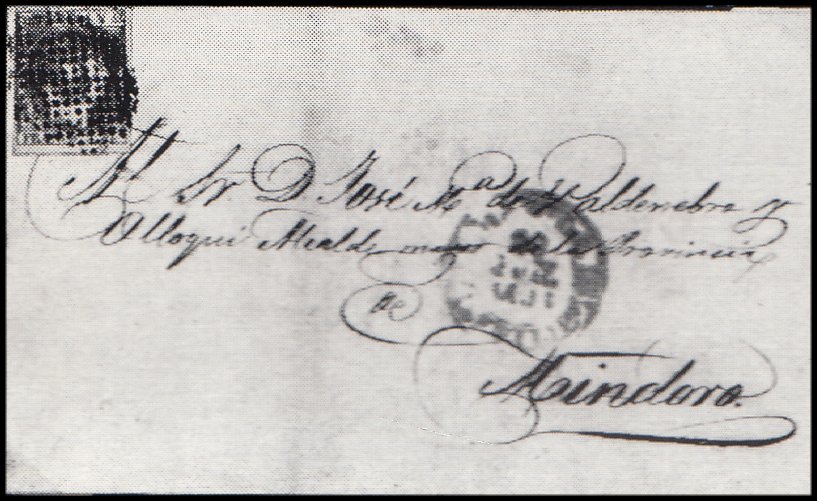 Al Sr. D. José Mª de Valdenebro y
Olloqui Alcalde mayor de la Provincia
de
Mindoro.